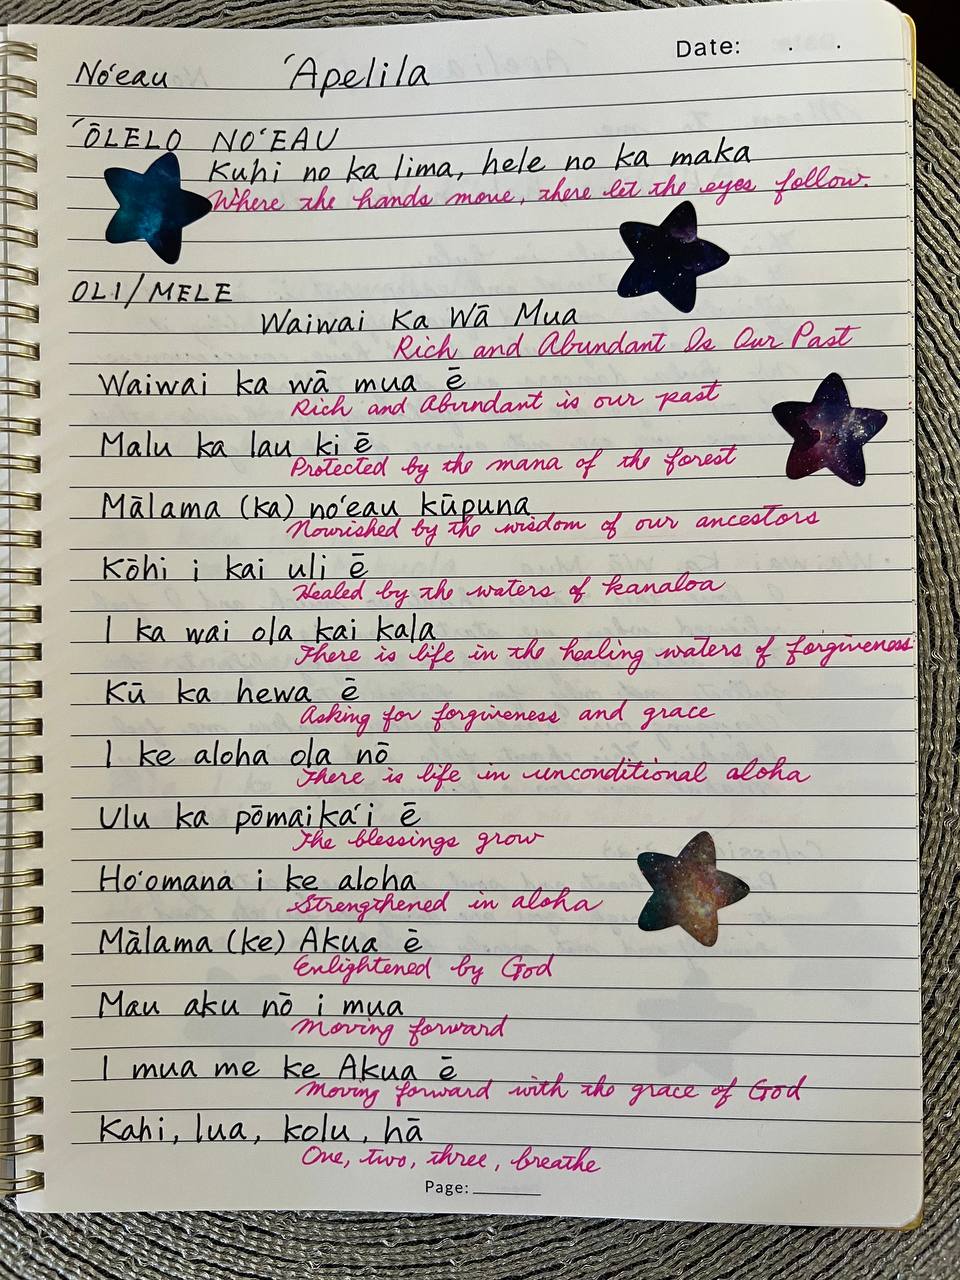 Date: . .
No'eau 'Apelila
'ŌLELO NO'EAU
Kuhi no ka lima, hele no ka maka
Where the hands move, there let the eyes follow.
OLI/MELE
Waiwai Ka Wā Mua
Rich and Abundant Is Our Past
Waiwai ka wā mua ē
Rich and Abundant is our past
Malu ka lau ki ē
Protected by the mana of the forest
Mālama (ka) no'eau kūpuna
Nourished by the wisdom of our ancestors
Kōhi i kai uli ē
Healed by the waters of kanaloa
I ka wai ola kai kala
There is life in the healing waters of forgiveness
Kū ka hewa ē
Asking for forgiveness and grace
I ke aloha ola nō
There is life in unconditional aloha
Ulu ka pōmaika'i ē
The blessings grow
Ho'omana i ke aloha
Strengthened in aloha
Mālama (ke) Akua ē
Enlightened by God
Mau aku nō i mua
Moving forward
I mua me ke Akua ē
Moving forward with the grace of God
Kahi, lua, kolu, hā
One, two, three, breathe
Page: